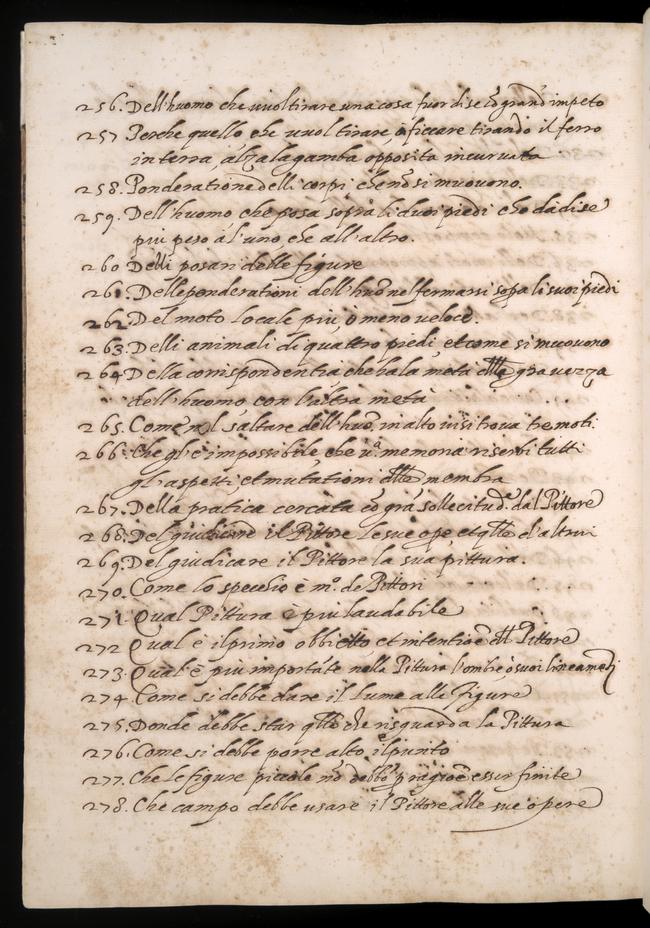 256. Dell'huomo che vuol tirare una cosa fuor di se cõ grand impeto
257 Perche quello che vuol tirare, o ficcare tirando il ferro
in terra, alza la gamba opposita incurvata
258. Ponderatione delli corpi che nõ si muovono.
259. Dell'huomo che posa sopra li duoi piedi che da di se
piu peso a l'uno, che all'altro.
260 Delli posari delle figure
261. Delle ponderationi dell'huõ nel fermarsi sopa li suoi piedi
262. Del moto locale piu, o meno veloce.
263. Delli animali di quattro piedi, et come si muovono
264 Della corrispondentia che ha la metà della gravezza
dell'huomo con l'altra metà
265. Come nel saltare dell'huõ, in alto vi si trova tre moti.
266. Che gl'è impossibile che ua. memoria riserbi tutti
gl'aspetti, et mutationi delle membra
267. Della pratica cercata cõ grã sollecitude. dal Pittore
268. Del giudicare il Pittore le sue ope et qlle d'altrui
269. Del giudicare il Pittore la sua pittura.
270. Come lo specchio è mo. de Pittori
271. Qual Pittura è piu laudabile
272 Qual è il primo obbietto, et intentioẽ dell Pittore
273. Qual'è piu importãte nella Pittura l'ombre, o suoi lineamẽti
274. Come si debbe dare il lume alle figure
275. Donde debbe star qllo che risguarda la Pittura
276. Come si debbe porre alto il punto
277. Che le figure piccole nõ debbõ p ragioẽ esser finite
278. Che campo debbe usare il Pittore alle sue opere